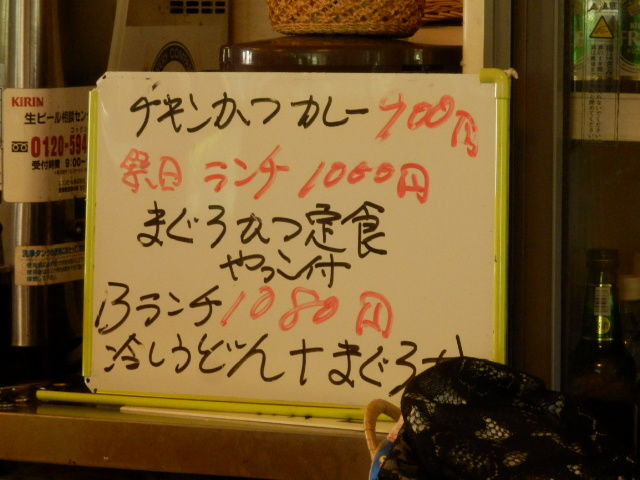 チキンかつカレー 900円
祭日 ランチ 1000円
まぐろかつ定食
やっこ付
Bランチ 1080円
冷しうどん+まぐろ
KIRIN
生ビール相談セン
0120-594
受付時間 9:00~